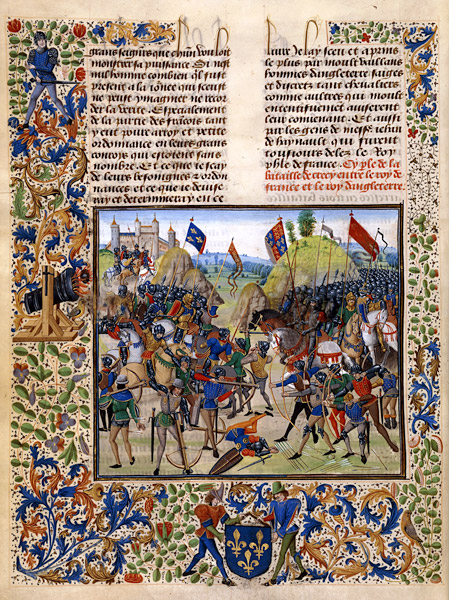 grans seigns que chun vouloit
monstrer sa puissance Si nest
nul homme combien q'il fust
present a la ionee qui sceust
ne peut ymaginer ne recor
der la verite Especialement
de la partie des francois tant
y eut poure arroy et petite
ordonnance en leurs grans
conrois qui estoient sans
nombre Et ce que ie scay
de leurs besongnes z ordon
nances et ce que ie deuse
ray et determineray en ce
liure ie lay sceu et apris
le plus par moult vaillans
hommes dingleterre saiges
et discrez tant cheualiers
comme aultres qui moult
ententiuement auiserent
leur couuenant Et aussi
par les gens de messe Jehan
de haynault qui furent
tousiours delez le Roy
phe de france Cy ple de la
bataille de crecy entre le roy de
france et le roy dingleterre